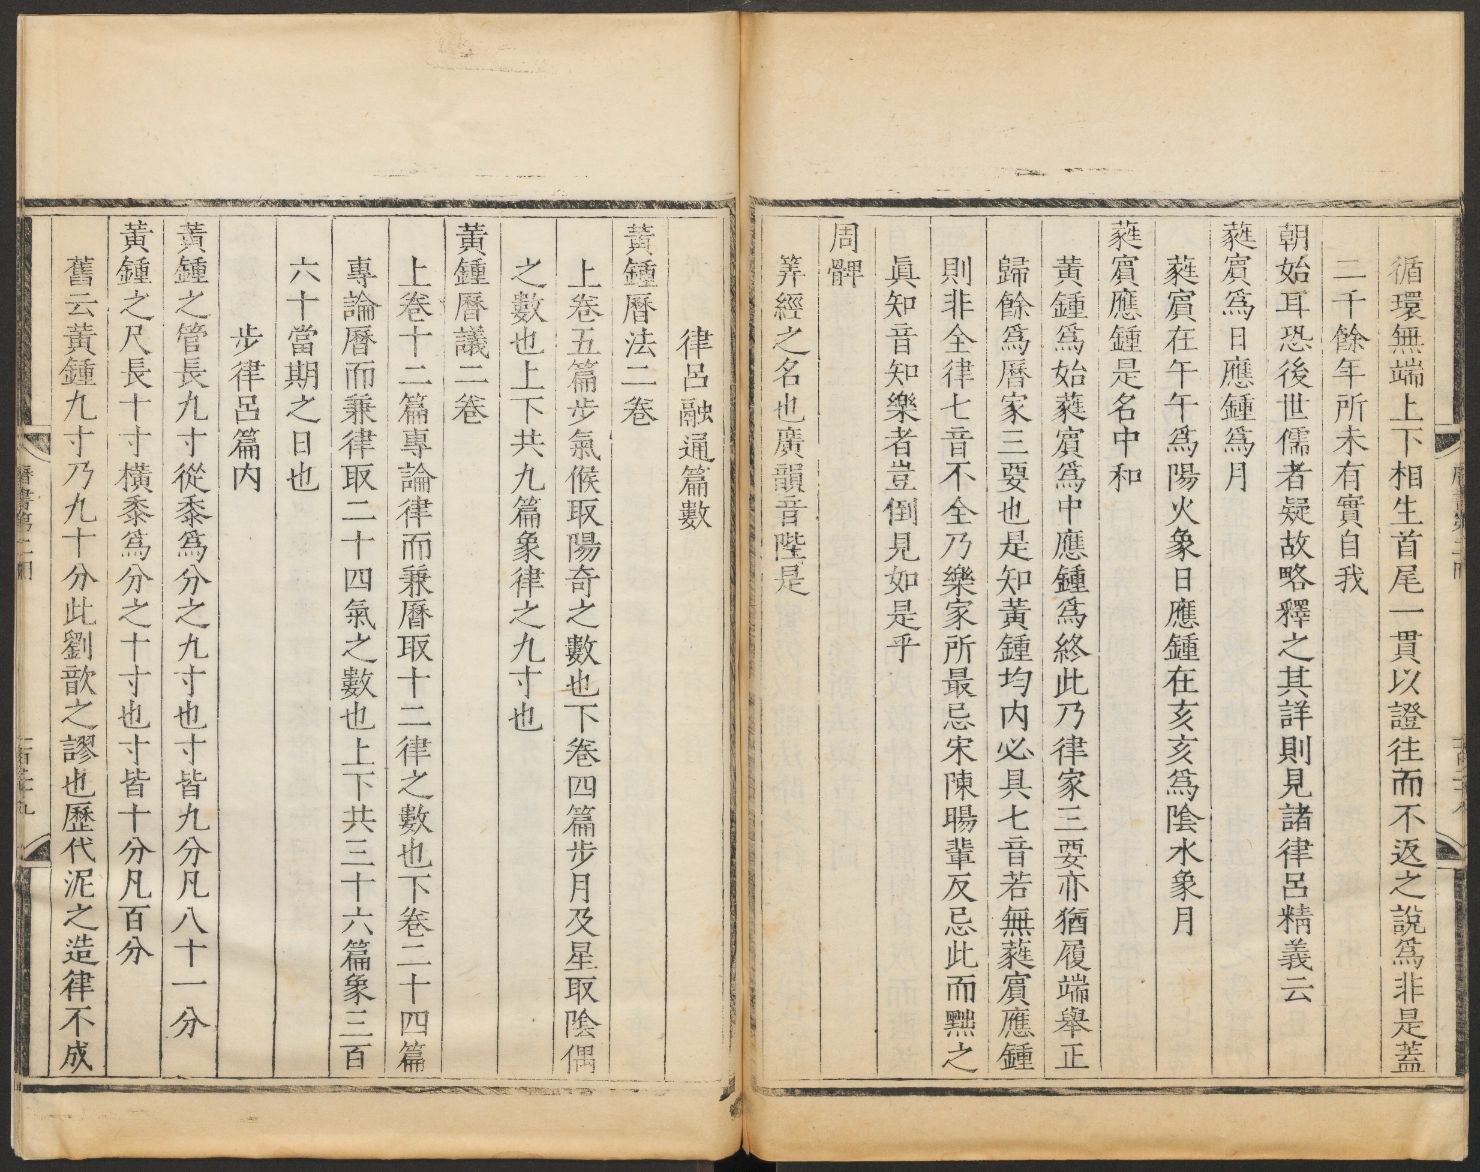 循環無端上下相生首尾一貫以證往而不返之說爲非是蓋
二千餘年所未有實自我
朝始耳恐後世儒者疑故略釋之其詳則見諸律呂精義云
蕤賓爲日應鍾爲月
蕤賓在午午爲陽火象日應鍾在亥亥爲陰水象月
蕤賓應鍾是名中和
黃鍾爲始蕤賓爲中應鍾爲終此乃律家三要亦猶履端舉正
歸餘爲曆家三要也是知黃鍾均內必具七音若無蕤賓應鍾
則非全律七音不全乃樂家所最忌宋陳暘輩反忌此而黜之
眞知音知樂者豈倒見如是乎
周髀
筭經之名也廣韻音陛是
律呂融通篇數
黃鍾曆法二卷
上卷五篇步氣候取陽奇之數也下卷四篇步月及星取陰偶
之數也上下共九篇象律之九寸也
黃鍾曆議二卷
上卷十二篇專論律而兼曆取十二律之數也下卷二十四篇
專論曆而兼律取二十四氣之數也上下共三十六篇象三百
六十當期之日也
步律呂篇內
黃鍾之管長九寸從黍爲分之九寸也寸皆九分凡八十一分
黃鍾之尺長十寸橫黍爲分之十寸也寸皆十分凡百分
舊云黃鍾九寸乃九十分此劉歆之謬也歷代泥之造律不成